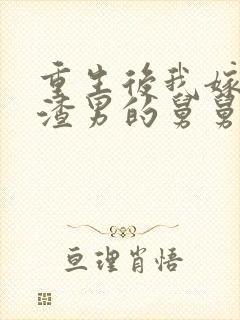 重生後我嫁
渣男的舅舅
亘理肖悟